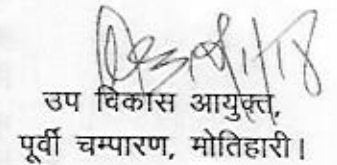 उप विकास आयुक्त,
पूर्वी चम्पारण, मोतिहारी।